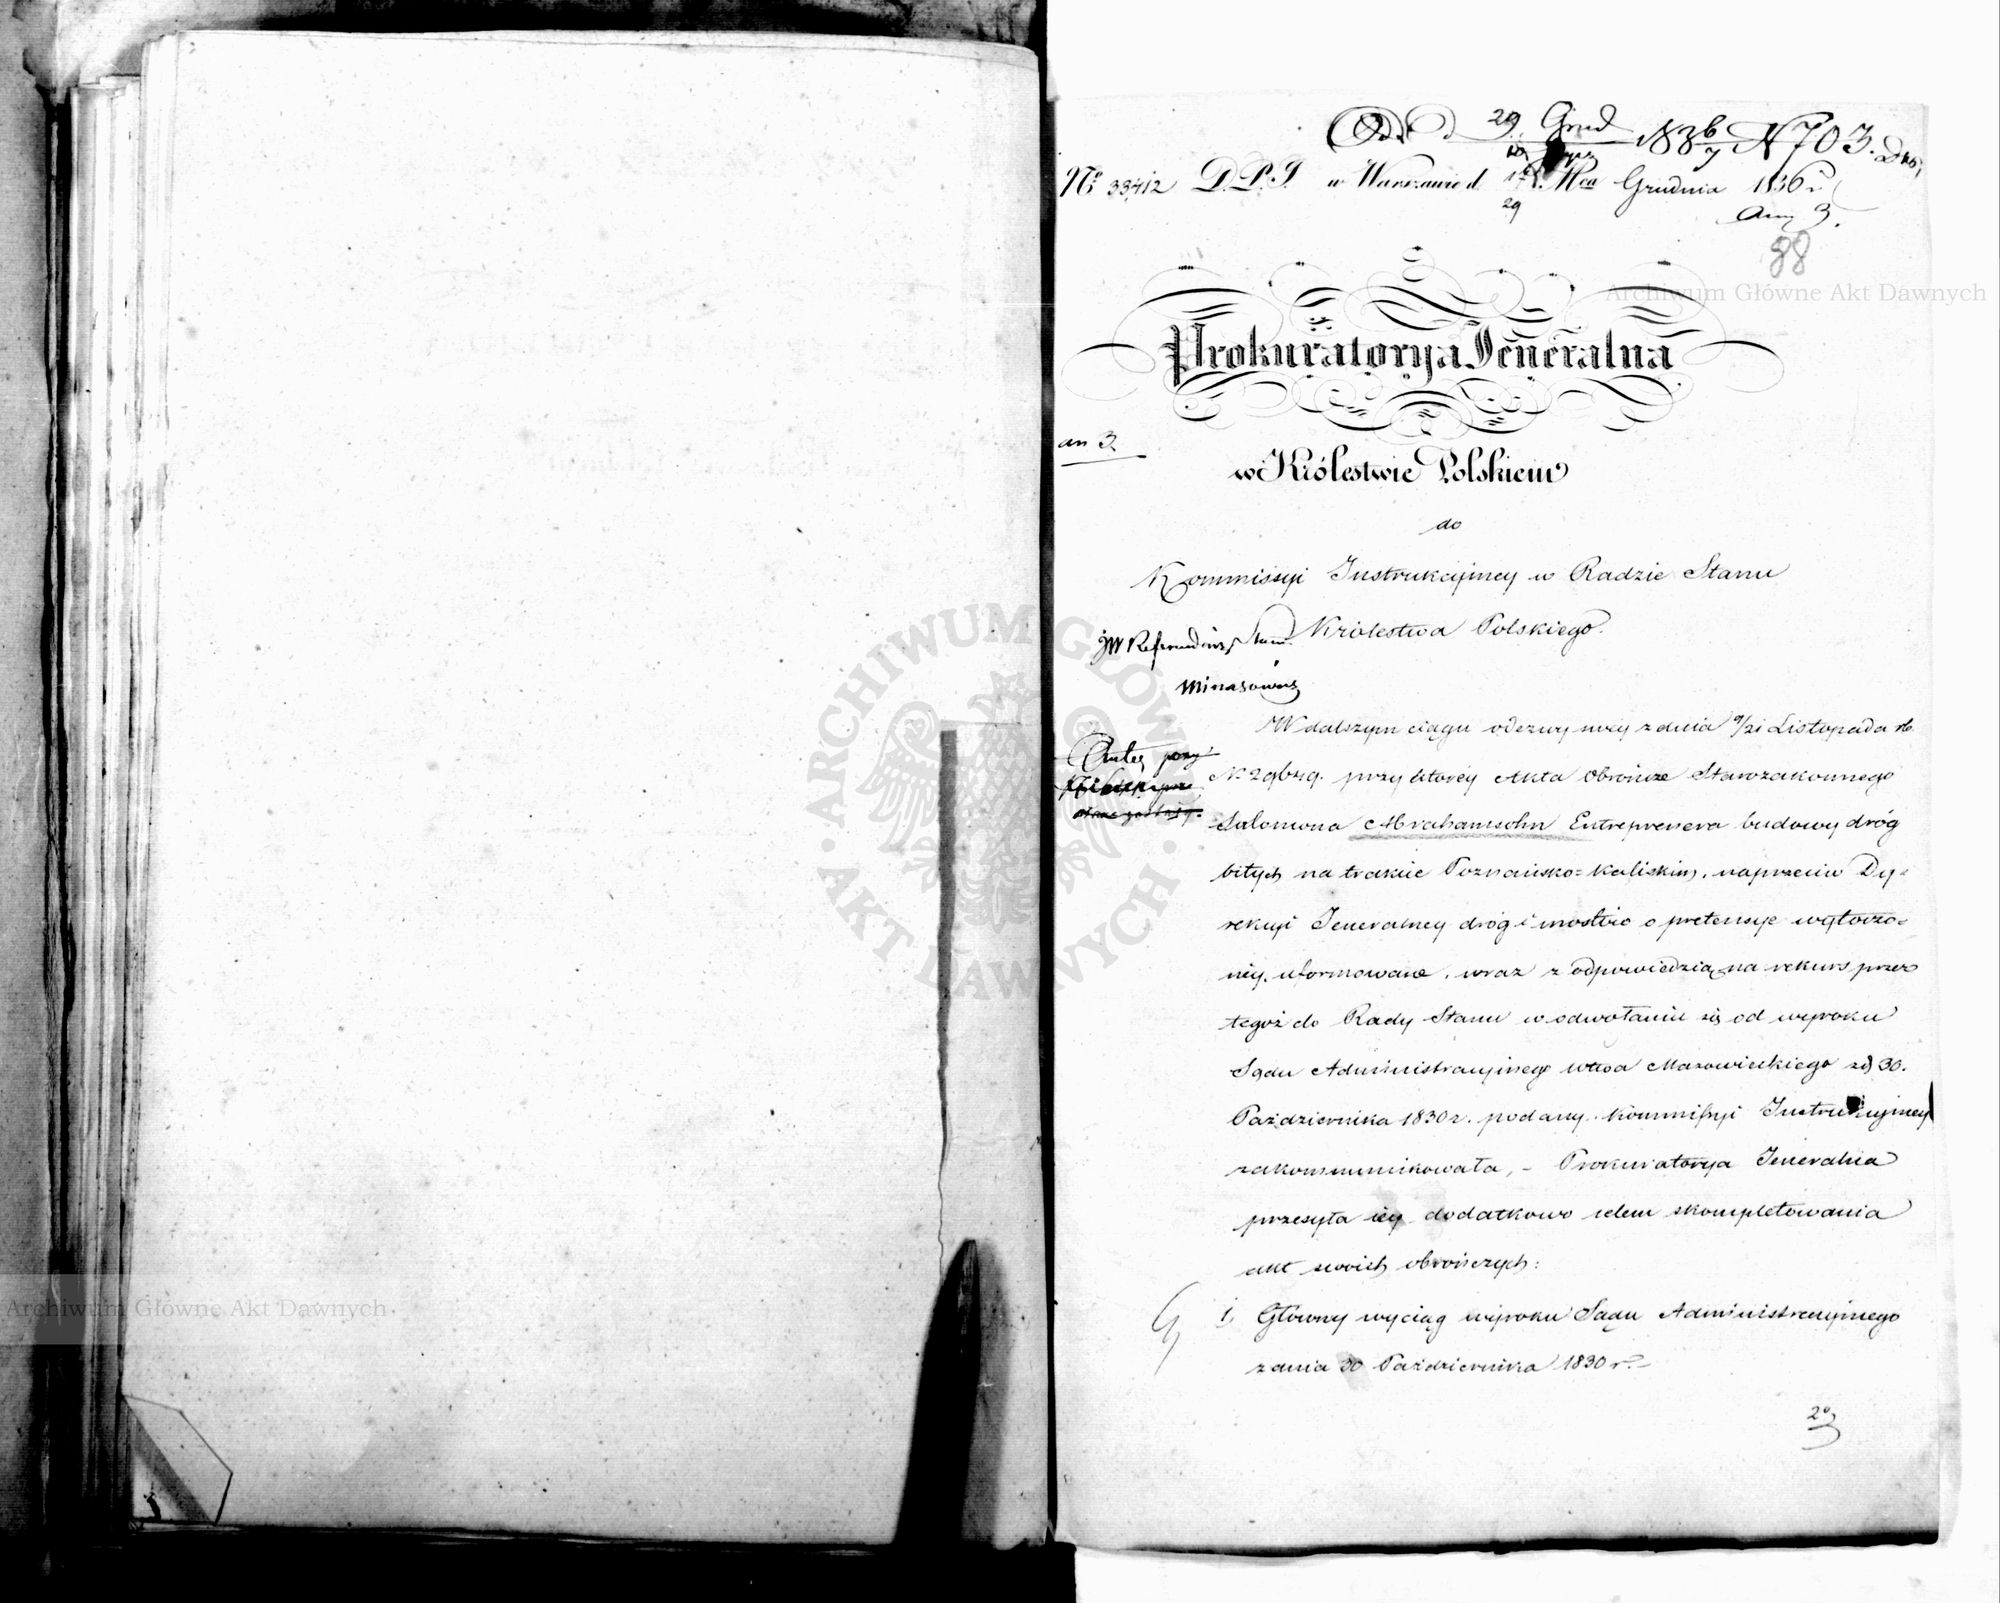 29 Grud 1836/7 N 703.
No 33412 D.P.J. w Warszawie d. 17/29 Mca Grudnia 1836 r.
an 3.
88
Archiwum Główne Akt Dawnych
Prokuratorya Jeneralna
an 3.
w Królestwie Polskiem
do
Kommissyi Instrukcyiney w Radzie Stanu
Królestwa Polskiego.
JW Referendarz Stanu
Minasowicz
W dalszym ciągu odezwy swey z dnia 9/21 Listopada rb.
N. 29629. przy którey Akta Obrończe Starozakonnego
Salomona Abrahamsohn Entreprenera budowy dróg
bitych na trakcie Poznańsko=Kaliskim, naprzeciw Dy=
rekcyi Jeneralney dróg i mostów o pretensye wytoczo=
ney, uformowane, wraz z odpowiedzią na rekurs przez
tegoż do Rady Stanu w odwołaniu się od wyroku
Sądu Administracyinego Wdwa Mazowieckiego z d 30.
Października 1830 r. podany, Kommissyi Instrukcyiney
zakommunikowała, – Prokuratorya Jeneralna
przesyła iey dodatkowo celem skompletowania
akt swoich obrończych:
1, Główny wyciąg wyroku Sądu Administracyinego
z dnia 30 Października 1830 r. –
2o,
ARCHIWUM GŁÓWNE AKT DAWNYCH
Archiwum Główne Akt Dawnych